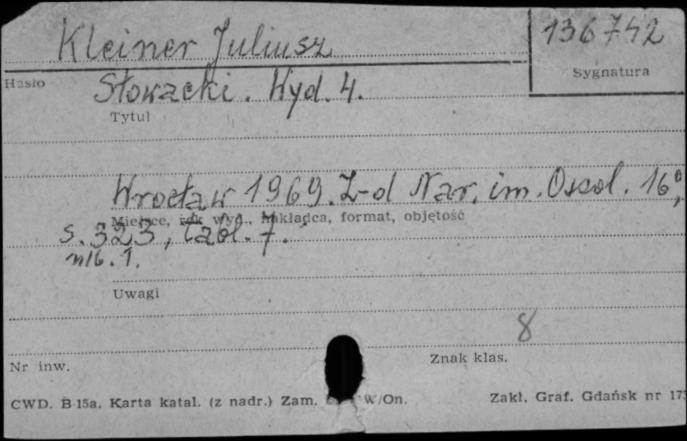 Kleiner Juliusz
136742
Hasło
Sygnatura
Słowacki. Wyd. 4.
Tytuł
Wrocław 1969. Z-d Nar. im. Ossol. 16°,
Miejsce, rok wyd., nakładca, format, objętość
s. 323, tabl. 7.
nlb. 1.
Uwagi
8
Nr inw.
Znak klas.
CWD. B-15a. Karta katal. (z nadr.) Zam. W/On.
Zakł. Graf. Gdańsk nr 173